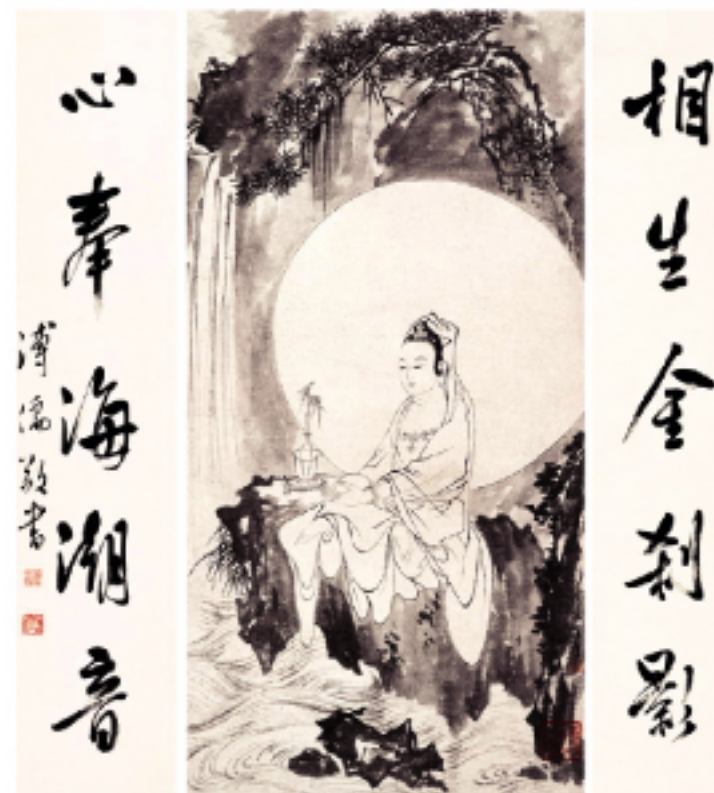 相生金刹影
心奉海潮音
溥儒敬书